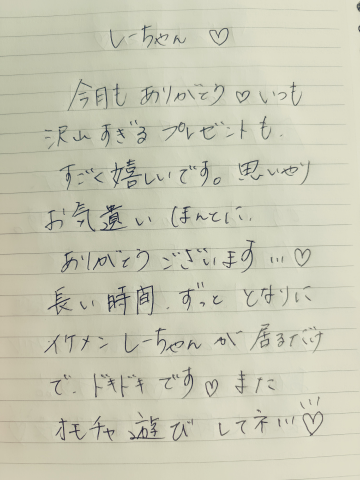 しーちゃん ♡
今日も ありがとう♡いつも
沢山すぎる プレゼントも、
すごく嬉しいです。思いやり
お気遣い ほんとに、
ありがとう ございます…♡
長い時間、ずっと となりに
イケメン しーちゃん が 居るだけ
で、ドキドキ です♡ また
オモチャ 遊び してネ…♡